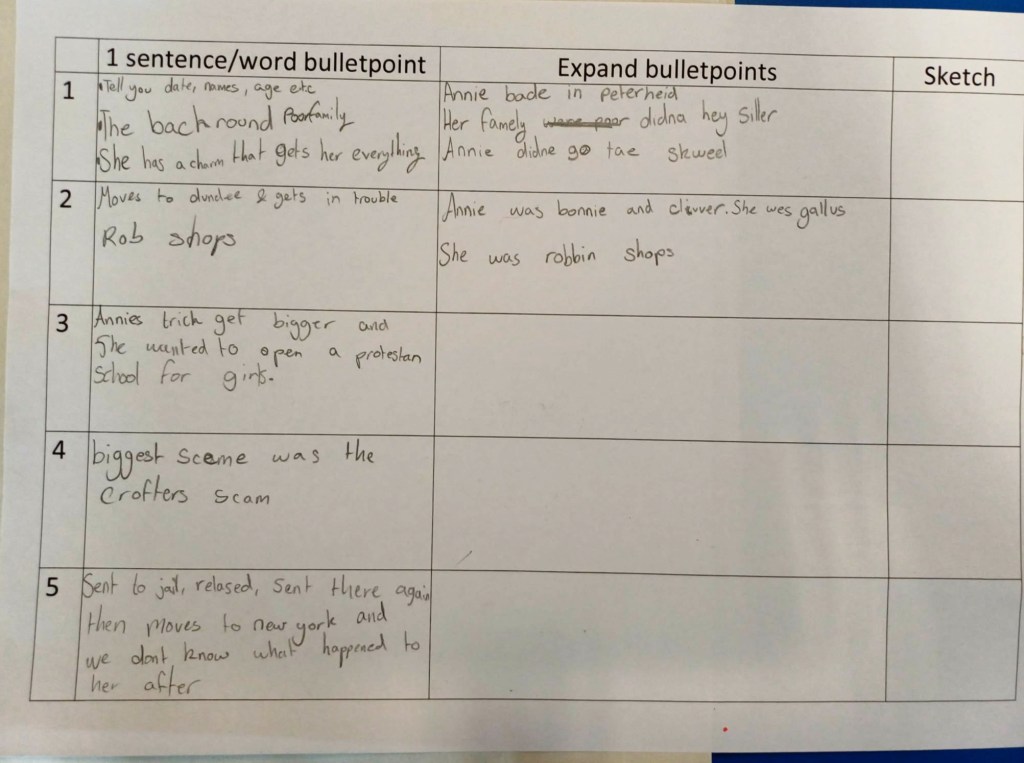 1 sentence/word bulletpoint
Expand bulletpoints
Sketch
1
•Tell you date, names, age etc
•The back round Poor family
•She has a charm that gets her everything
Annie bade in peterheid
Her famely were poor didna hey Siller
Annie didne go tae skweel
2
Moves to dundee & gets in trouble
Rob shops
Annie was bonnie and cliuver. She wes gallus
She was robbin shops
3
Annies trick get bigger and
She wanted to open a protestan
School for girls.
4
biggest sceme was the
Crofters scam
5
Sent to jail, relased, sent there again
then moves to new york and
we dont know what happened to
her after